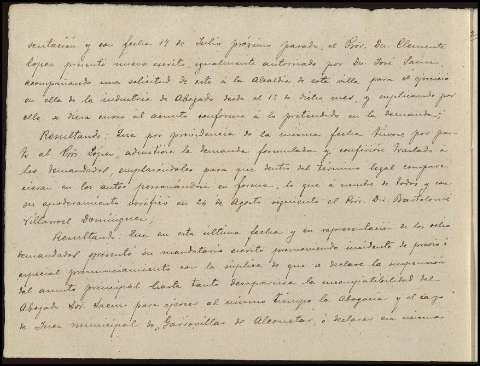 sentación y con fecha 17 de Julio próximo pasado, el Pror. Dn. Clemente
Lopez presentó nuevo escrito, igualmente autorizado por Dn. José Saenz,
acompañando una solicitud de este á la Alcaldia de esta villa para el ejercicio
en ella de la industria de Abogado desde el 1º de dicho mes, y suplicando que
ello se diera curso al asunto conforme á lo pretendido en la demanda;
Resultando: Que por providencia de la misma fecha tuvose por par-
te al Pror. Lopez, admitiose la demanda formulada y confirióse traslado a
los demandados, emplazandoles para que dentro del término legal compare-
cieran en los autos personandose en forma, lo que a nombre de todos y con
su apoderamiento verificó en 24 de Agosto siguiente el Pror. Dn. Bartolomé
Villarroel Dominguez,
Resultando: Que en esta ultima fecha y en representacion de los ocho
demandados presentó su mandatario escrito promoviendo incidente de previo i
especial pronunciamiento con la súplica de que se declare la suspension
del asunto principal hasta tanto desaparezca la incompatibilidad del
Abogado Sor. Saenz para ejercer al mismo tiempo la Abogacia y el cargo
de Juez municipal de Garrovillas de Alconetar, ó declarar sin